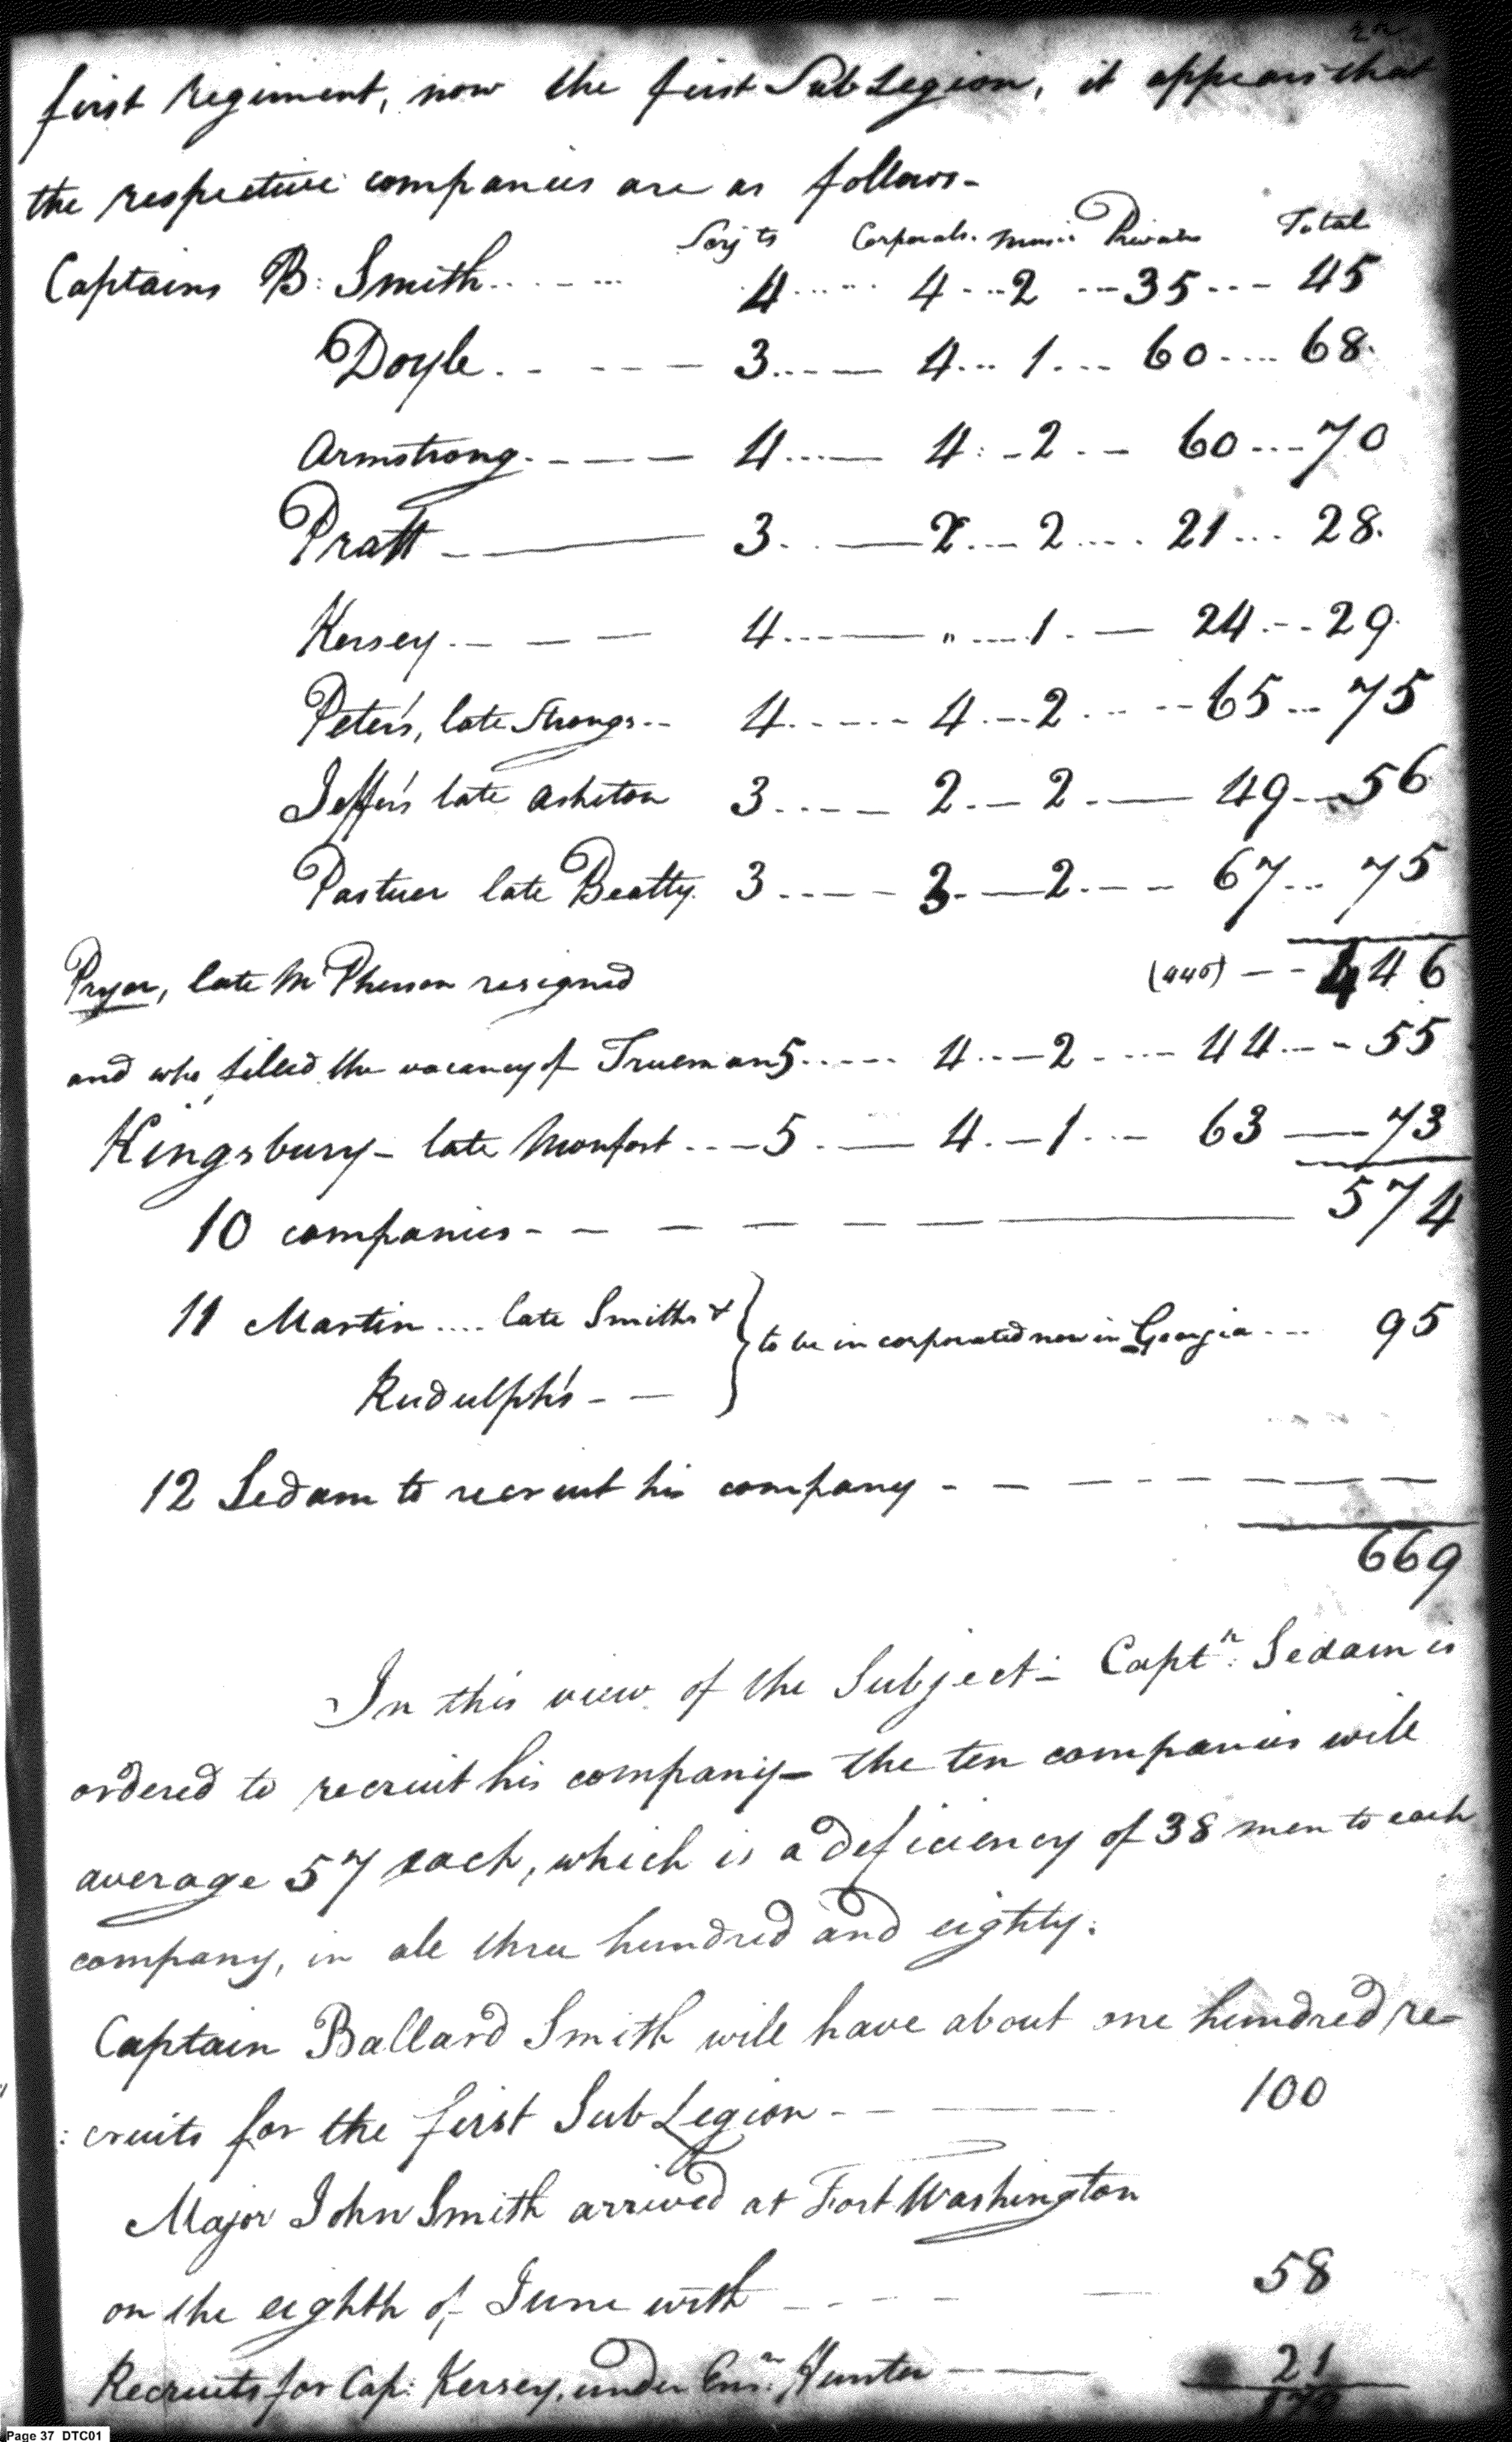 first regiment, now the first Sub Legion, it appears that
the respective companies are as follows-
Serjts Corporals. music Privates Total
Captains B: Smith 4 4 2 35 45
Doyle 3 4 1 60 68.
Armstrong 4 4 2 60 70
Pratt 3 2 2 21 28.
Kersey 4 " 1 24 29.
Peters, late Strongs 4 4 2 65 75
Jeffers late Asheton 3 2 2 49 56
Pastuer late Beatty. 3 3 2 67 75
Pryor, late McPherson resigned (446) 446
and who filled the vacancy of Trueman 5 4 2 44 55
Kingsbury - late Monfort 5 4 1 63 73
10 companies 574
11 Martin .... late Smiths & } to be incorporated now in Georgia 95
Rudulph's
12 Sedam to recruit his company
669
In this view of the Subject - Captn: Sedam is
ordered to recruit his company - the ten companies will
average 57 each, which is a deficiency of 38 men to each
company, in all three hundred and eighty.
Captain Ballard Smith will have about one hundred re-
:cruits for the first Sub Legion 100
Major John Smith arrived at Fort Washington
on the eighth of June with 58
Recruits for Cap: Kersey, under Ensn: Hunter 21
179
Page 37 DTC01